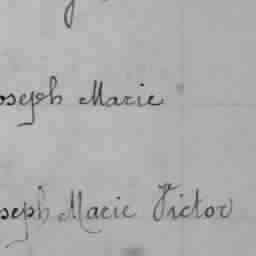 oseph Marie
seph Marie Victor